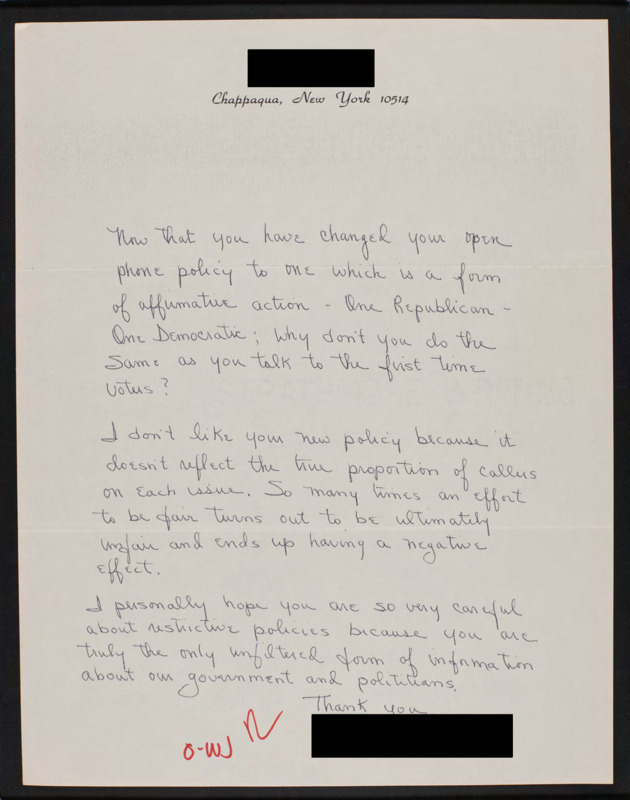 Chappaqua, New York 10514
Now that you have changed your open
phone policy to one which is a form
of affirmative action - One Republican -
One Democratic; Why don't you do the
same as you talk to the first time
voters?
I don't like your new policy because it
doesn't reflect the true proportion of callers
on each issue. So many times an effort
to be fair turns out to be ultimately
unfair and ends up having a negative
effect.
I personally hope you are so very careful
about restrictive policies because you are
truly the only unfiltered form of information
about our government and polititians.
Thank you